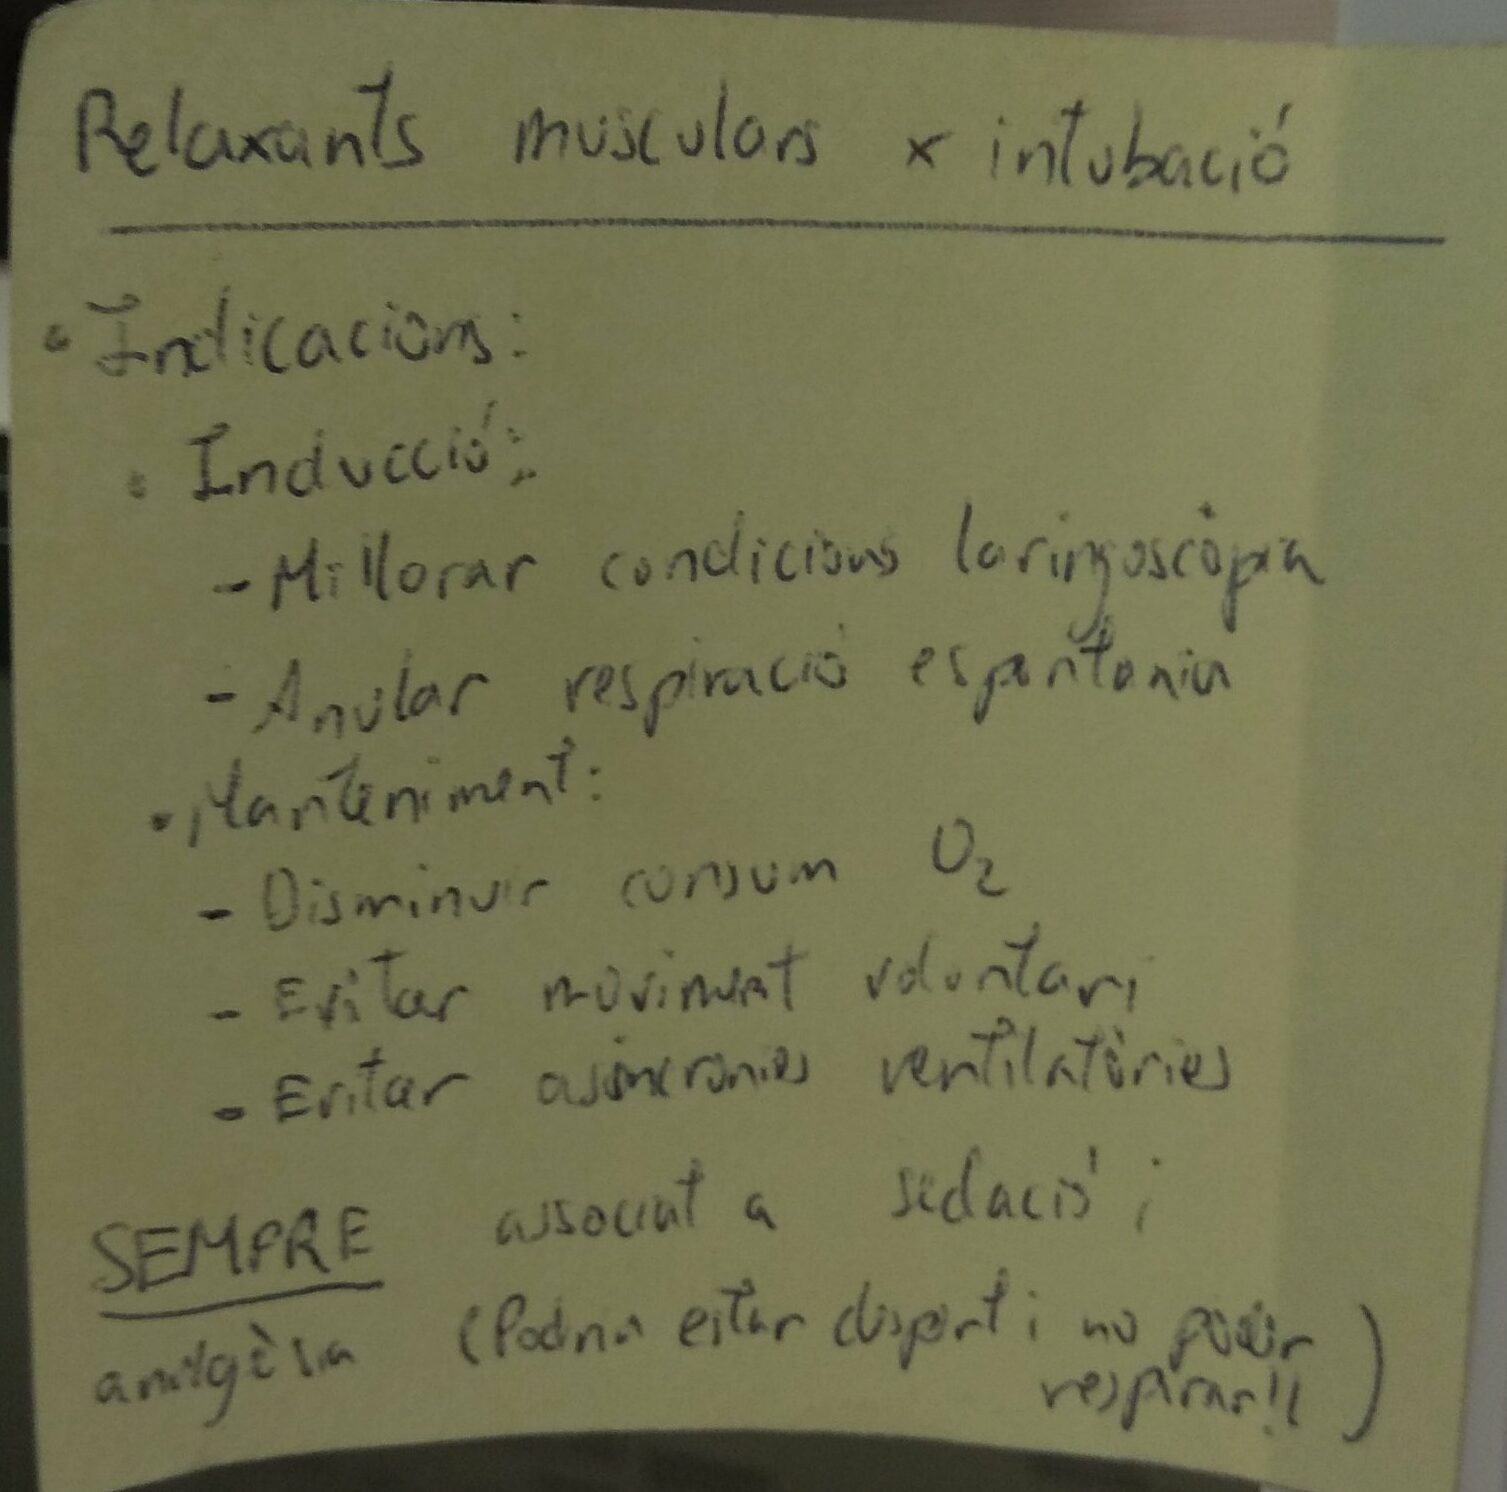 Relaxants musculars x intubació
• Indicacions:
• Inducció:
- Millorar condicions laringoscòpia
- Anular respiració espontania
• Manteniment:
- Disminuir consum O₂
- Evitar moviment voluntari
- Evitar asincronies ventilatòries
SEMPRE associat a sedació i
analgèsia (Podria estar despert i no poder
respirar!!)